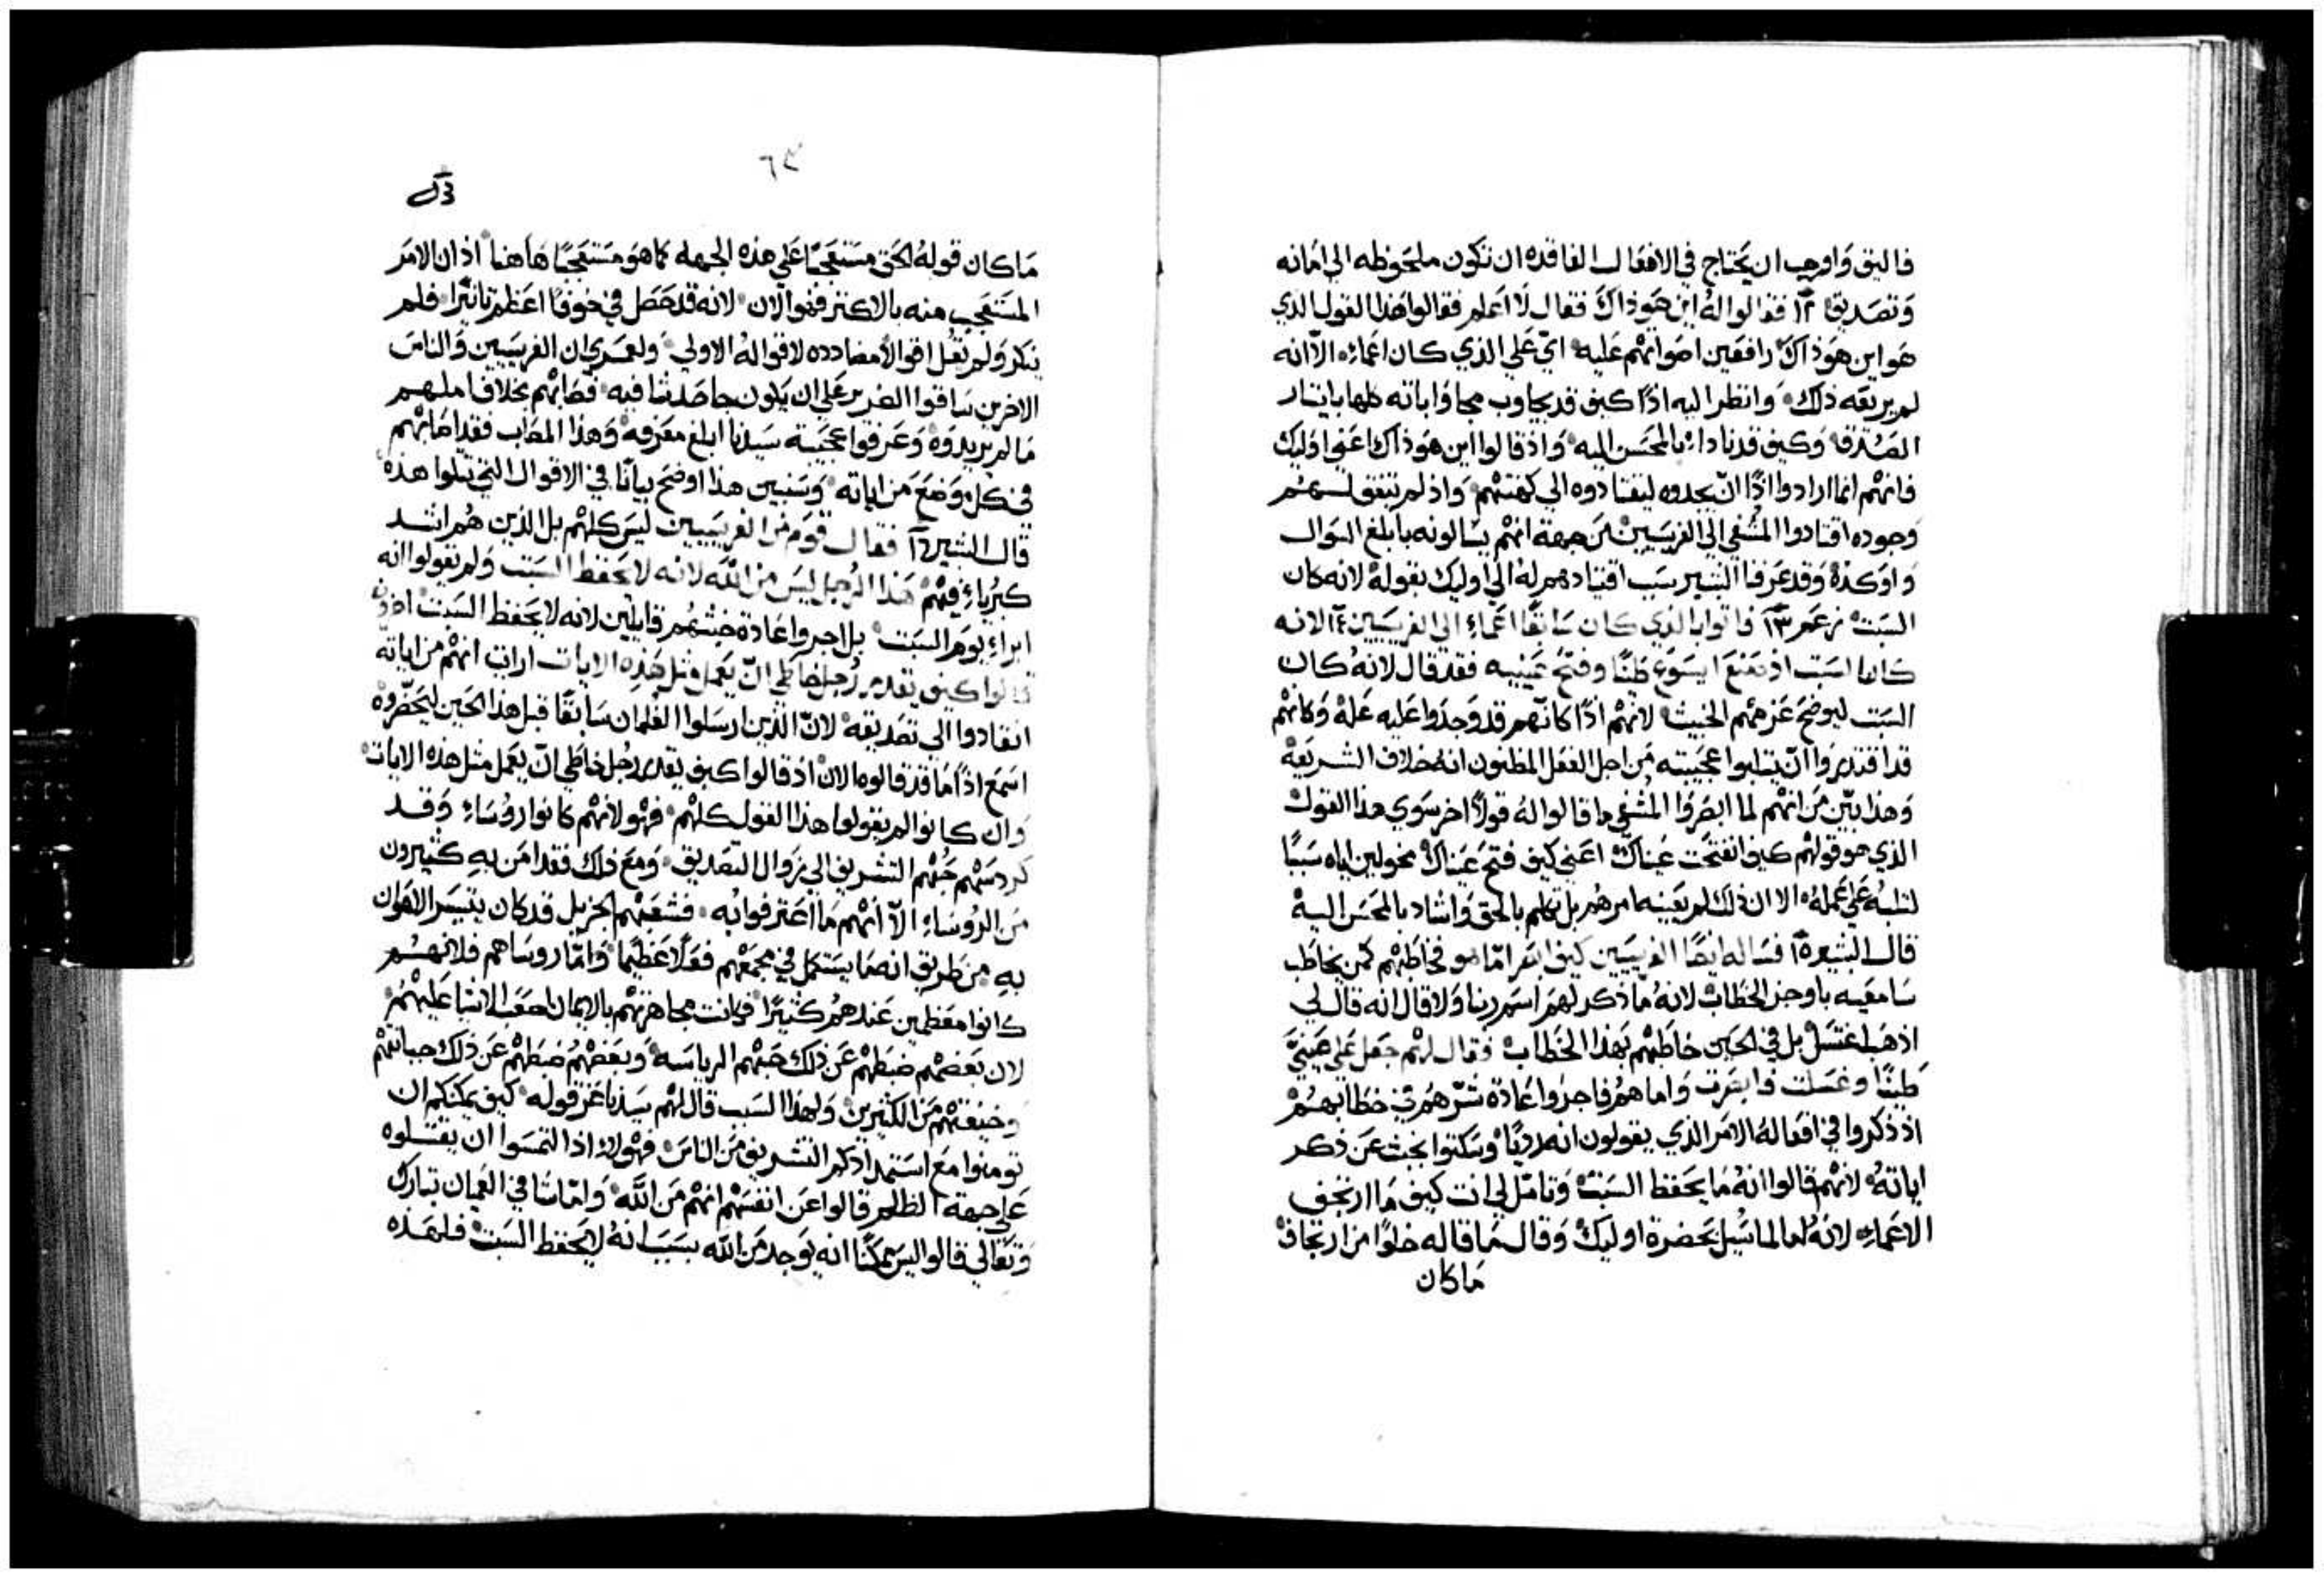 فاليق واوجب ان يحتاج في الافعال الفاقده ان تكون ملحوظه الي امانه
وتصديق ١٢ فقالوا له اين هو ذاك فقال لا اعلم فقالوا هذا القول الذي
هو اين هو ذاك رافعين اصواتهم عليه اي علي الذي كان اعماء الا انه
لم يريعه ذلك وانظر اليه اذًا كيف قد يجاوب مجاواباته كلها بايثار
الصدق وكيف قد نادا بالمحسن اليه واذ قالوا اين هو ذاك اعني اوليك
فانهم انما ارادوا اذًا ان يجدوه ليقتادوه الي كهنتهم واذ لم يتفق لهم
وجوده اقتادوا المشفي الي الفريسيين من جهة انهم يسالونه بابلغ السوال
واوكده وقد عرفنا البشير سبب اقتيادهم له الي اوليك بقوله لانه كان
السبت زعم ١٣ فاتوا بالذي كان سابقًا اعماء الي الفريسيين ١٤ الا انه
كانها السبت اذ صنع ايسوع طينًا وفتح عينيه فقد قال لانه كان
السبت ليوضح عزمهم الخبيث لانهم اذًا كانهم قد وجدوا عليه علة وكانهم
قد اقتدروا ان يثلبوا عجيبته من اجل الفعل المظنون انه خلاف الشريعة
وهذا بين من انهم لما ابصروا المشفي ما قالوا له قولًا اخر سوي هذا القول
الذي هو قولهم كيف انفتحت عيناك اعني كيف فتح عيناك مخولين اياه سببًا
لثلبه علي عمله الا ان ذلك لم يعينه امرهم بل تكلم بالحق واشاد بالمحسن اليه
قال البشير ١٥ فساله ايضًا الفريسيين كيف ابصر اما هو فخاطبهم كمن يخاطب
سامعيه باوجز الخطاب لانه ما ذكر لهم اسم ربنا ولا قال انه قال لي
اذهب اغتسل بل في الحين خاطبهم بهذا الخطاب فقال لهم جعل علي عيني
طينًا وغسلت فابصرت واما هم فاجروا عادة شرهم في خطابهم
اذ ذكروا في افعاله الامر الذي يقولون انه رديًا وسكتوا بخبث عن ذكر
اياته لانهم قالوا انه ما يحفظ السبت وتامل لي انت كيف ما ارتجف
الاعماء لانه لعالما سيل بحضرة اوليك وقال ما قاله خلوًا من ارتجاف
ما كان
٦٢
ما كان قوله الحق مستعجبًا علي هذه الجهة كما هو مستعجبًا هاهنا اذ ان الامر
المستعجب منه بالاكثر فهو الان لانه قد حصل في خوفًا اعظم تاثيرا فلم
ينكر ولم يقل اقوالًا مضادده لاقواله الاولي ولعمري ان الفريسيين والناس
الاخرين ساقوا الضرير علي ان يكون جاحدًا شافيه فصابهم بخلاف املهم
ما لم يريدوه وعرفوا عجيبة سيدنا ابلغ معرفه وهذا المصاب فقد اصابهم
في كل موضع من اياته وسنبين هذا اوضح بيانًا في الاقوال التي تتلوا هذه
قال البشير ١٦ فقال قوم من الفريسيين ليس كلهم بل الذين هم اشد
كبرياء فيهم هذا الرجل ليس من الله لانه لا يحفظ السبت ولم يقولوا انه
ابراء يوم السبت بل اجروا عادة خبثهم قايلين لانه لا يحفظ السبت اخرون
قالوا كيف يقدر رجل خاطي ان يعمل مثل هذه الايات ارايت انهم من اياته
انقادوا الي تصديقه لان الذين ارسلوا الغلمان سابقًا قبل هذا الحين ليحضروه
اسمع اذًا ما قد قالوه الان اذ قالوا كيف يقدر رجل خاطي ان يعمل مثل هذه الايات
وان كانوا لم يقولوا هذا القول كلهم فهولاء لانهم كانوا روساء وقد
كردسهم حبهم التشريف الي زوال التصديق ومع ذلك فقد امن به كثيرون
من الروساء الا انهم ما اعترفوا به فشعبهم الجزيل قد كان يتيسر الهوان
به من طريق انه ما يستكمل في مجمعهم فعلًا عظيما واما روساهم فلانهم
كانوا معظمين عندهم كثيرًا فكانت مجاهرتهم بالايمان اصعب الاشيا عليهم
لان بعضهم ضبطهم عن ذلك حبهم الرياسه وبعضهم ضبطهم عن ذلك جبانتهم
وخيفتهم من الكثيرين ولهذا السبب قال لهم سيدنا عز قوله كيف يمكنكم ان
تومنوا مع استمدادكم التشريف من الناس فهولاء اذا التمسوا ان يقتلوه
علي جهة الظلم قالوا عن انفسهم انهم من الله واما شافي العميان تبارك
وتعالي قالوا ليس يمكنا انه يوجد من الله بسبب انه لا يحفظ السبت فلهذه